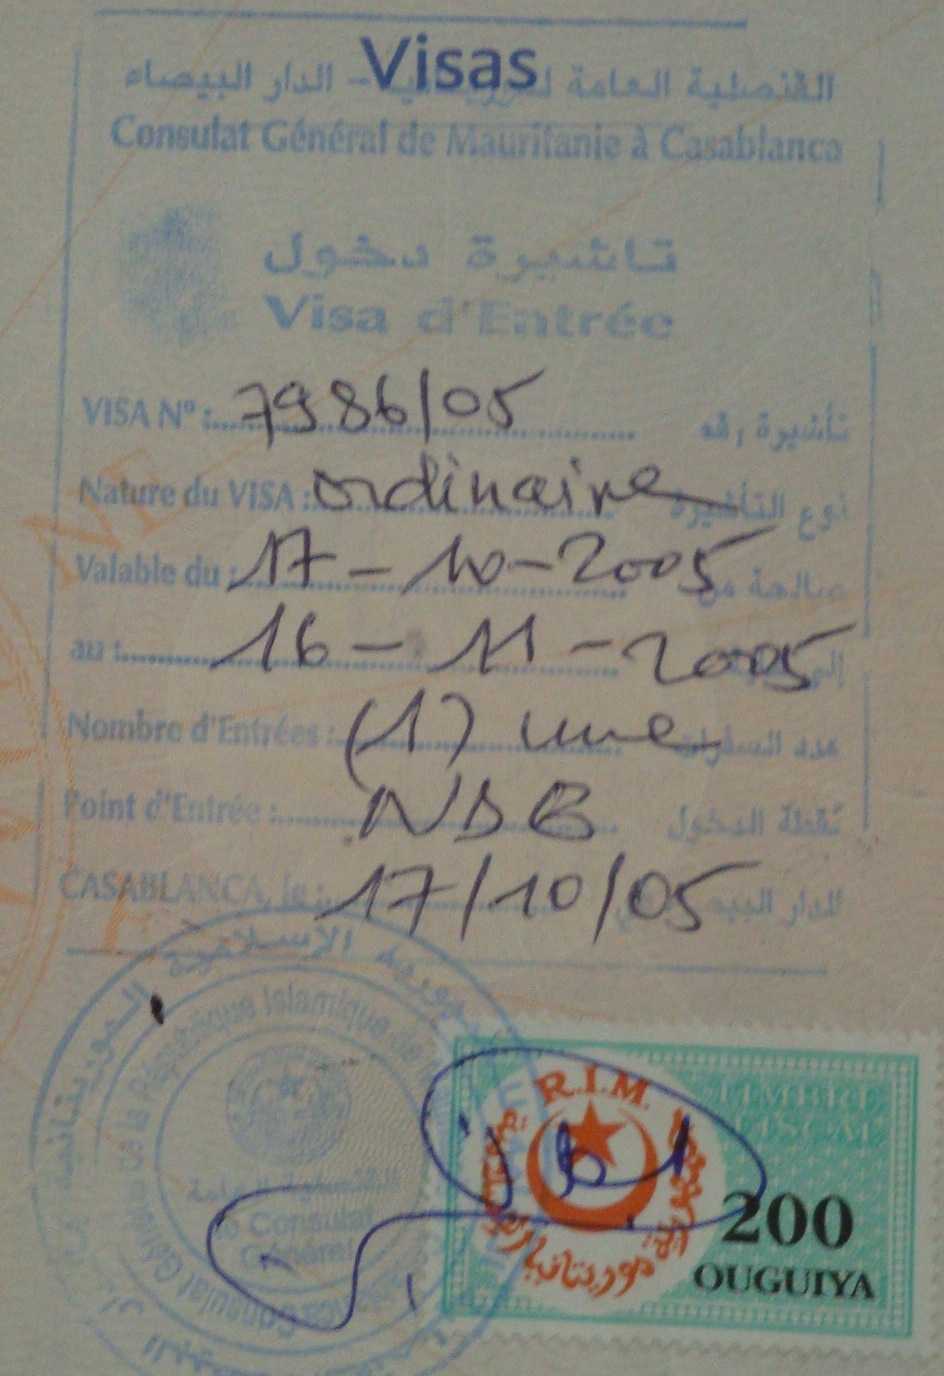 Visas
القنصلية العامة لموريتانيا - الدار البيضاء
Consulat Général de Mauritanie à Casablanca
تأشيرة دخول
Visa d'Entrée
VISA N° : 7986/05 تأشيرة رقم
Nature du VISA : ordinaire نوع التأشيرة
Valable du : 17-10-2005 صالحة من
au : 16-11-2005 إلى
Nombre d'Entrées : (1) une عدد السفرات
Point d'Entrée : NDB نقطة الدخول
CASABLANCA, le : 17/10/05 الدار البيضاء في
الجمهورية الإسلامية الموريتانية
Consulat Général de la République Islamique de
القنصلية العامة
Le Consulat
Général
R.I.M.
TIMBRE
FISCAL
200
OUGUIYA